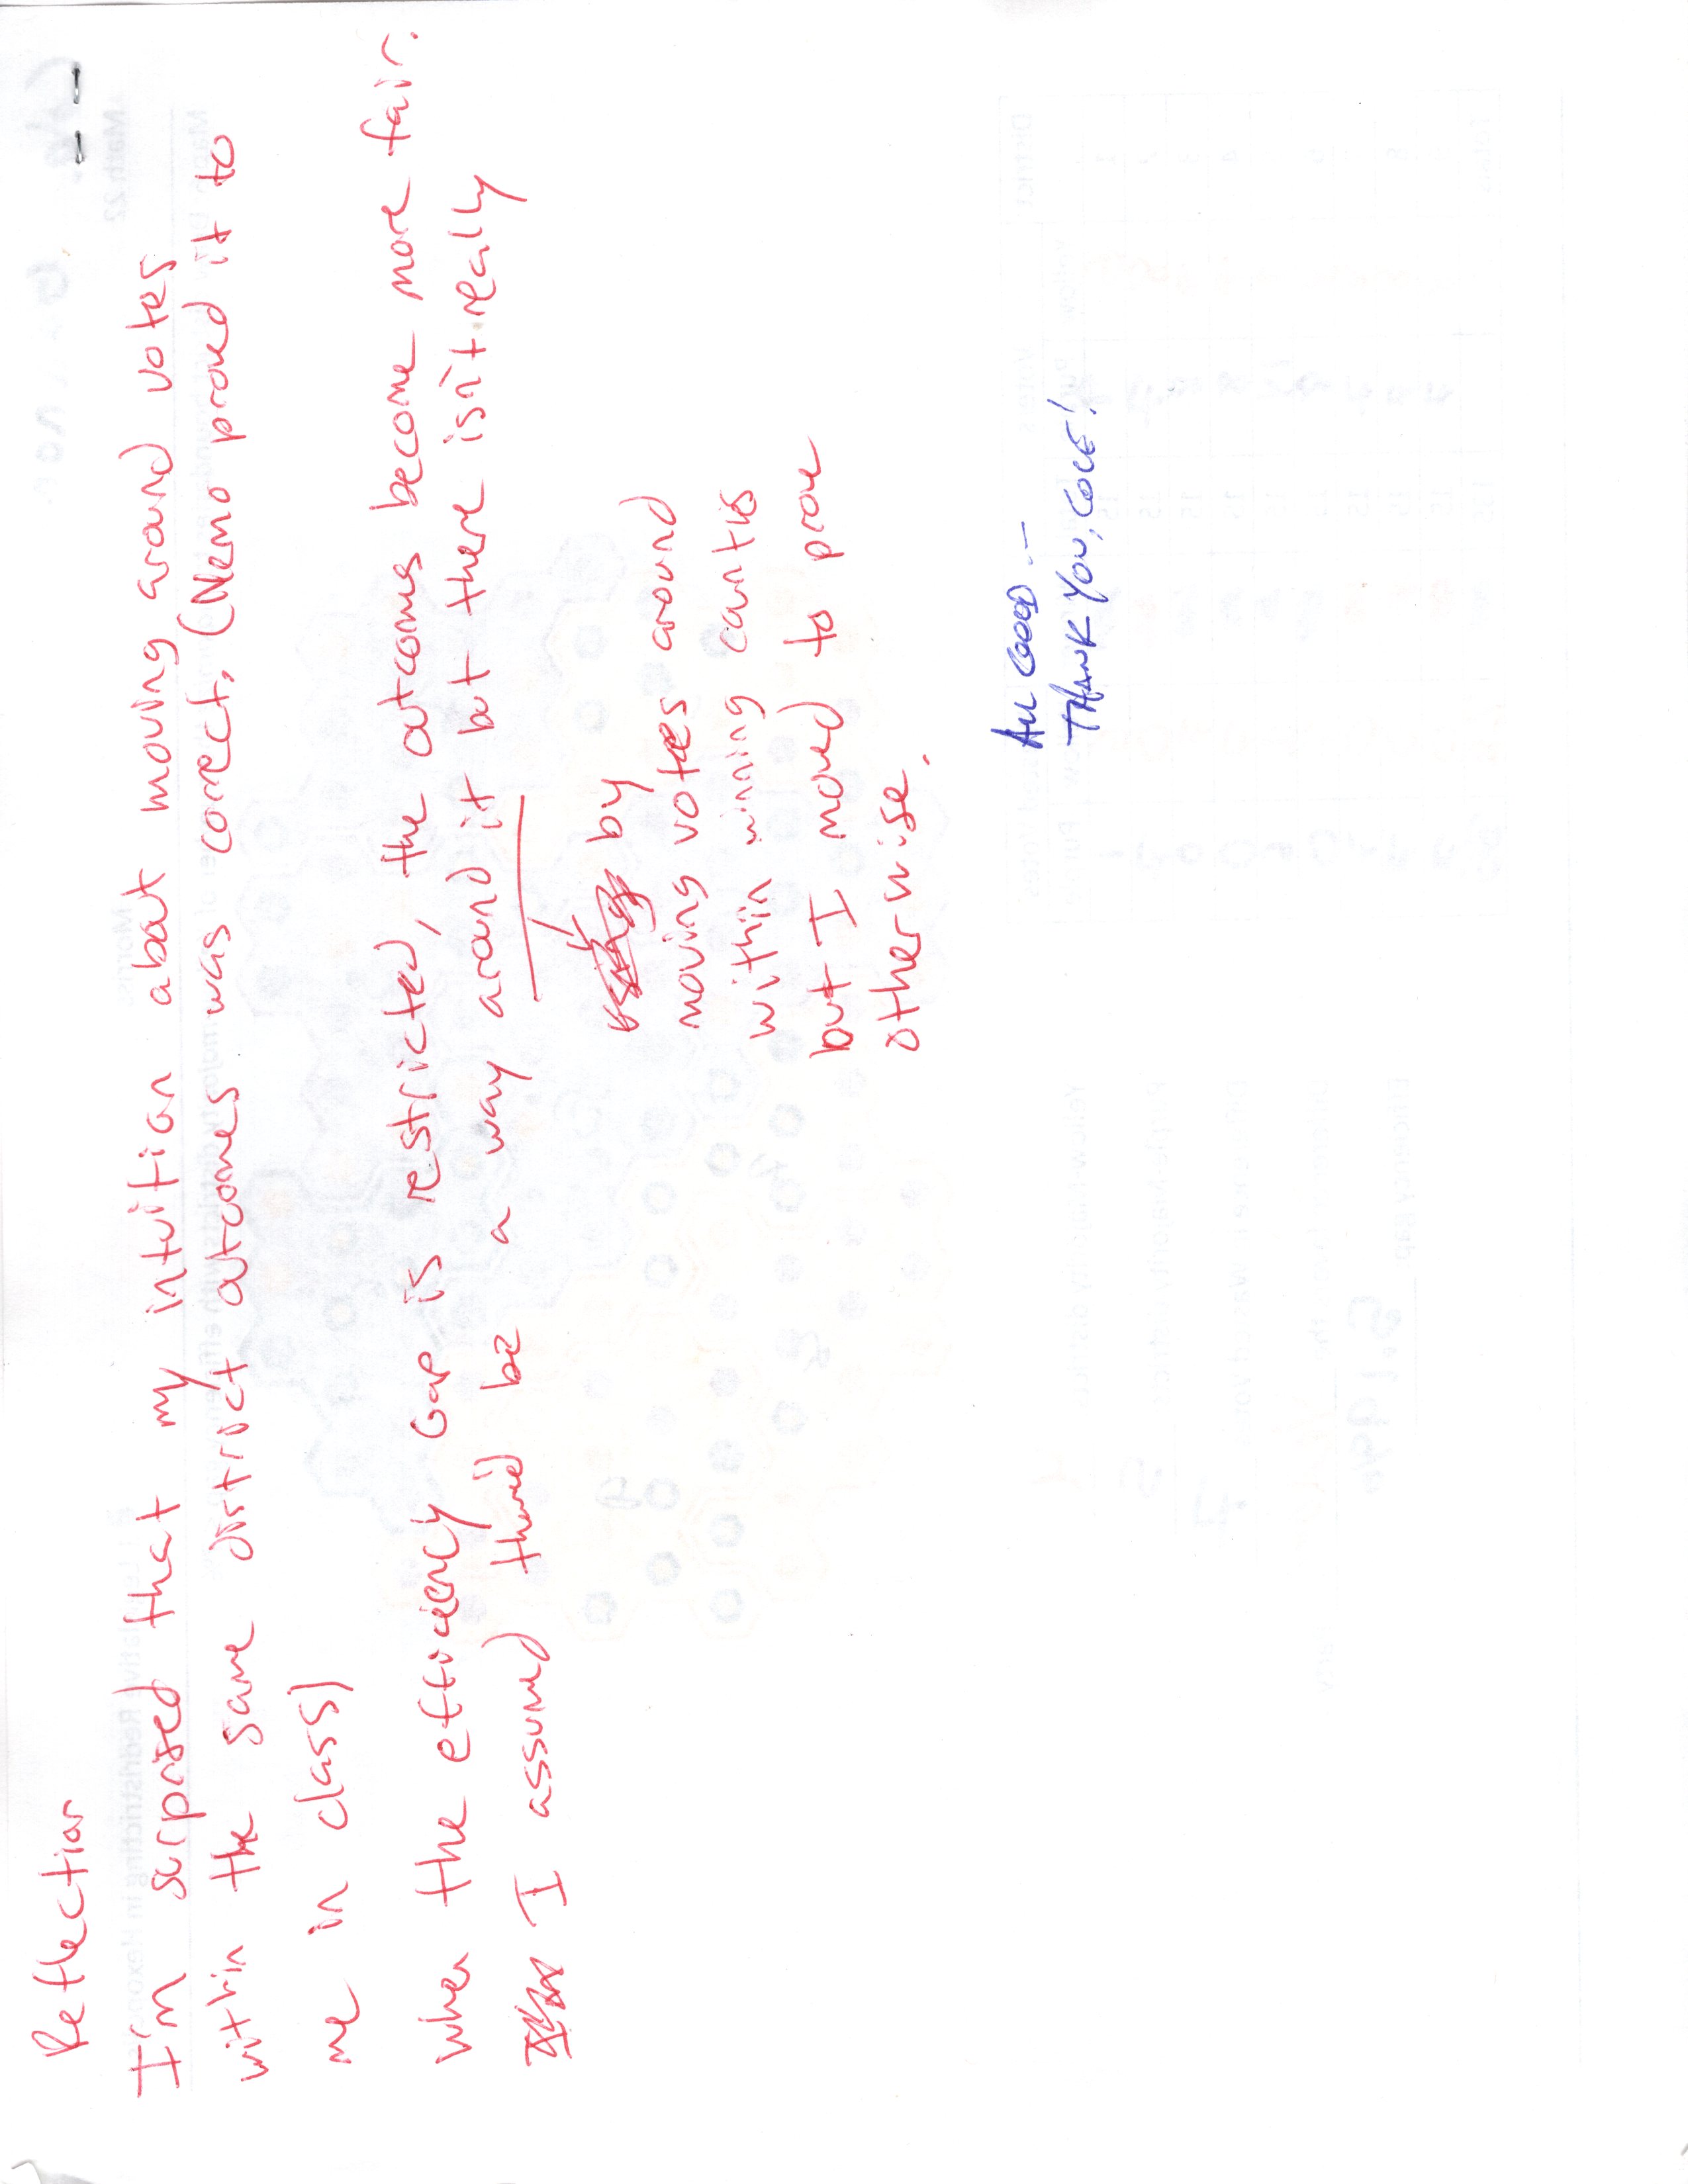 Reflection
I'm surprised that my intuition about moving around votes
within the same district outcomes was correct. (Nemo proved it to
me in class)
When the efficiency Gap is restricted, the outcomes become more fair.
I assumed there'd be a way around it but there isn't really
by
moving votes around
within winning counties
but I moved to prove
otherwise.
All GOOD --
THANK YOU, COLE!